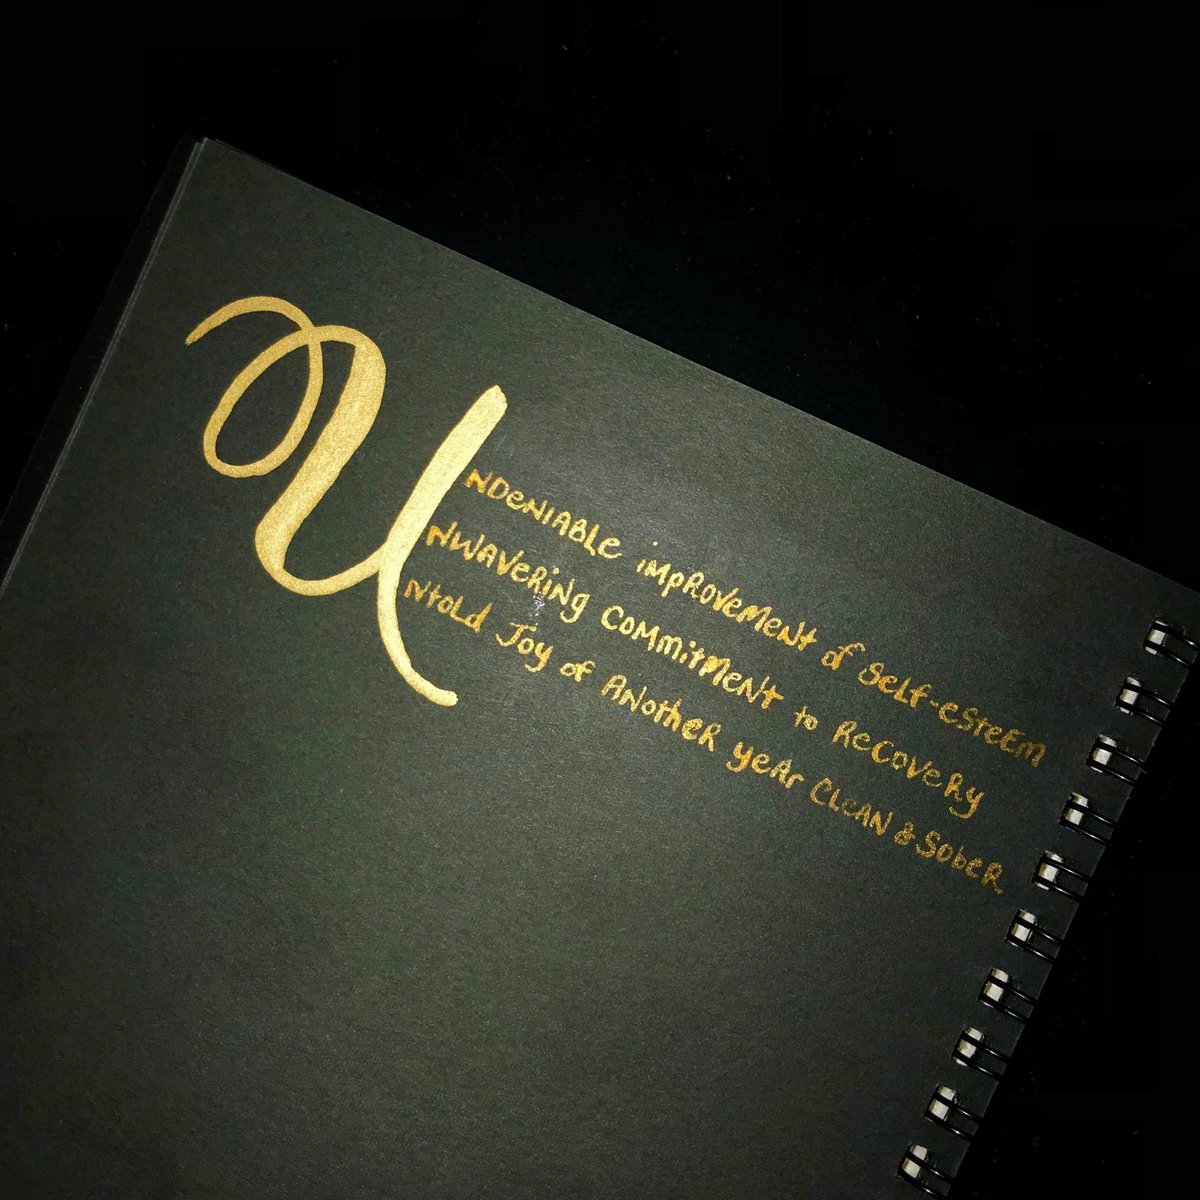 Undeniable improvement of self-esteem
Unwavering commitment to Recovery
Untold Joy of Another year Clean & Sober